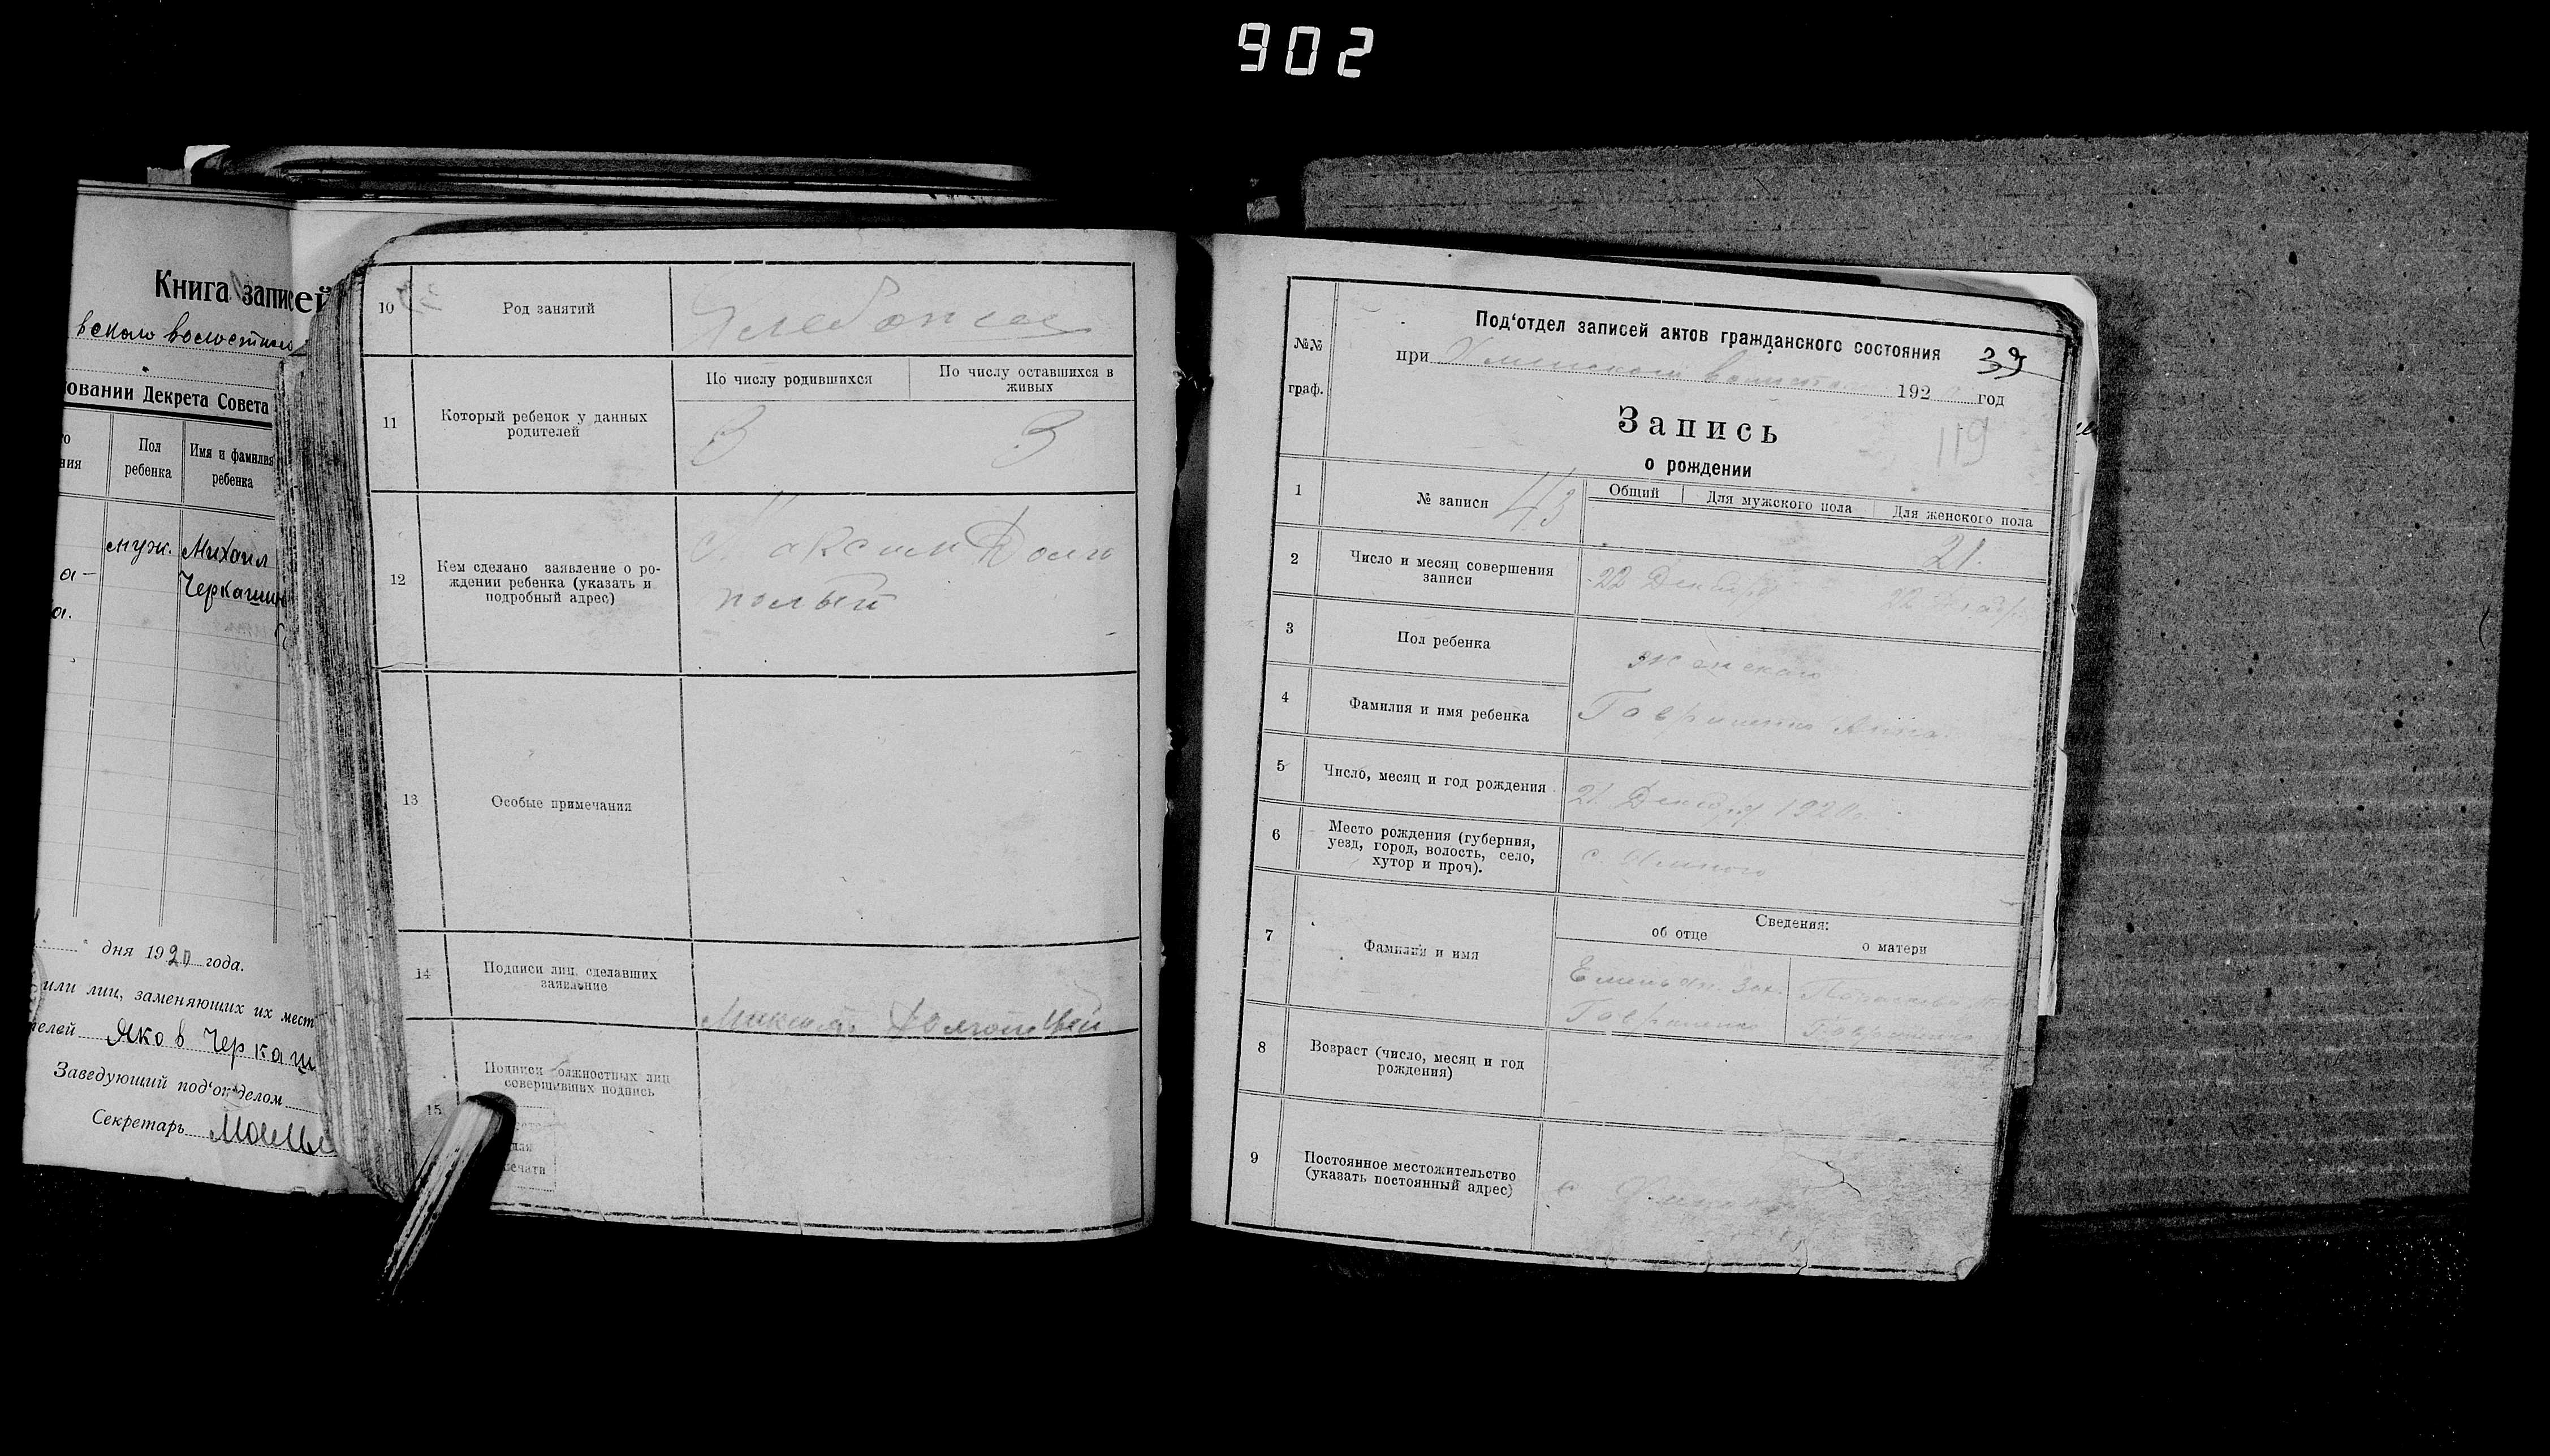 902
Книга записей
вского волостного
овании Декрета Совета
Пол
ребенка
Имя и фамилия
ребенка
муж. Михаил
Черкашин
дня 1920 года.
или лиц, заменяющих их мест
телей Яков Черкаш
Заведующий под'отделом
Секретарь
10 Род занятий Хлебопашец
11 Который ребенок у данных
родителей
По числу родившихся
По числу оставшихся в
живых
3 3
12 Кем сделано заявление о ро-
ждении ребенка (указать и
подробный адрес)
Максим Долго
полый
13 Особые примечания
14 Подписи лиц, сделавших
заявление
Максим
15 Подписи должностных лиц
совершивших подпись
для
печати
№№
граф.
Под'отдел записей актов гражданского состояния
39
при 192 год
Запись
119
о рождении
1 № записи 43
Общий Для мужского пола Для женского пола
21.
2 Число и месяц совершения
записи
22 Декабря 22 Декабр
3 Пол ребенка
женского
4 Фамилия и имя ребенка
Гавриленко Анна
5 Число, месяц и год рождения
21 Декабря 1920
6 Место рождения (губерния,
уезд, город, волость, село,
хутор и проч).
с
7 Фамилия и имя
Сведения:
об отце о матери
Емельян Зах.
Гавриленко Гавриленко
8 Возраст (число, месяц и год
рождения)
9 Постоянное местожительство
(указать постоянный адрес)
с